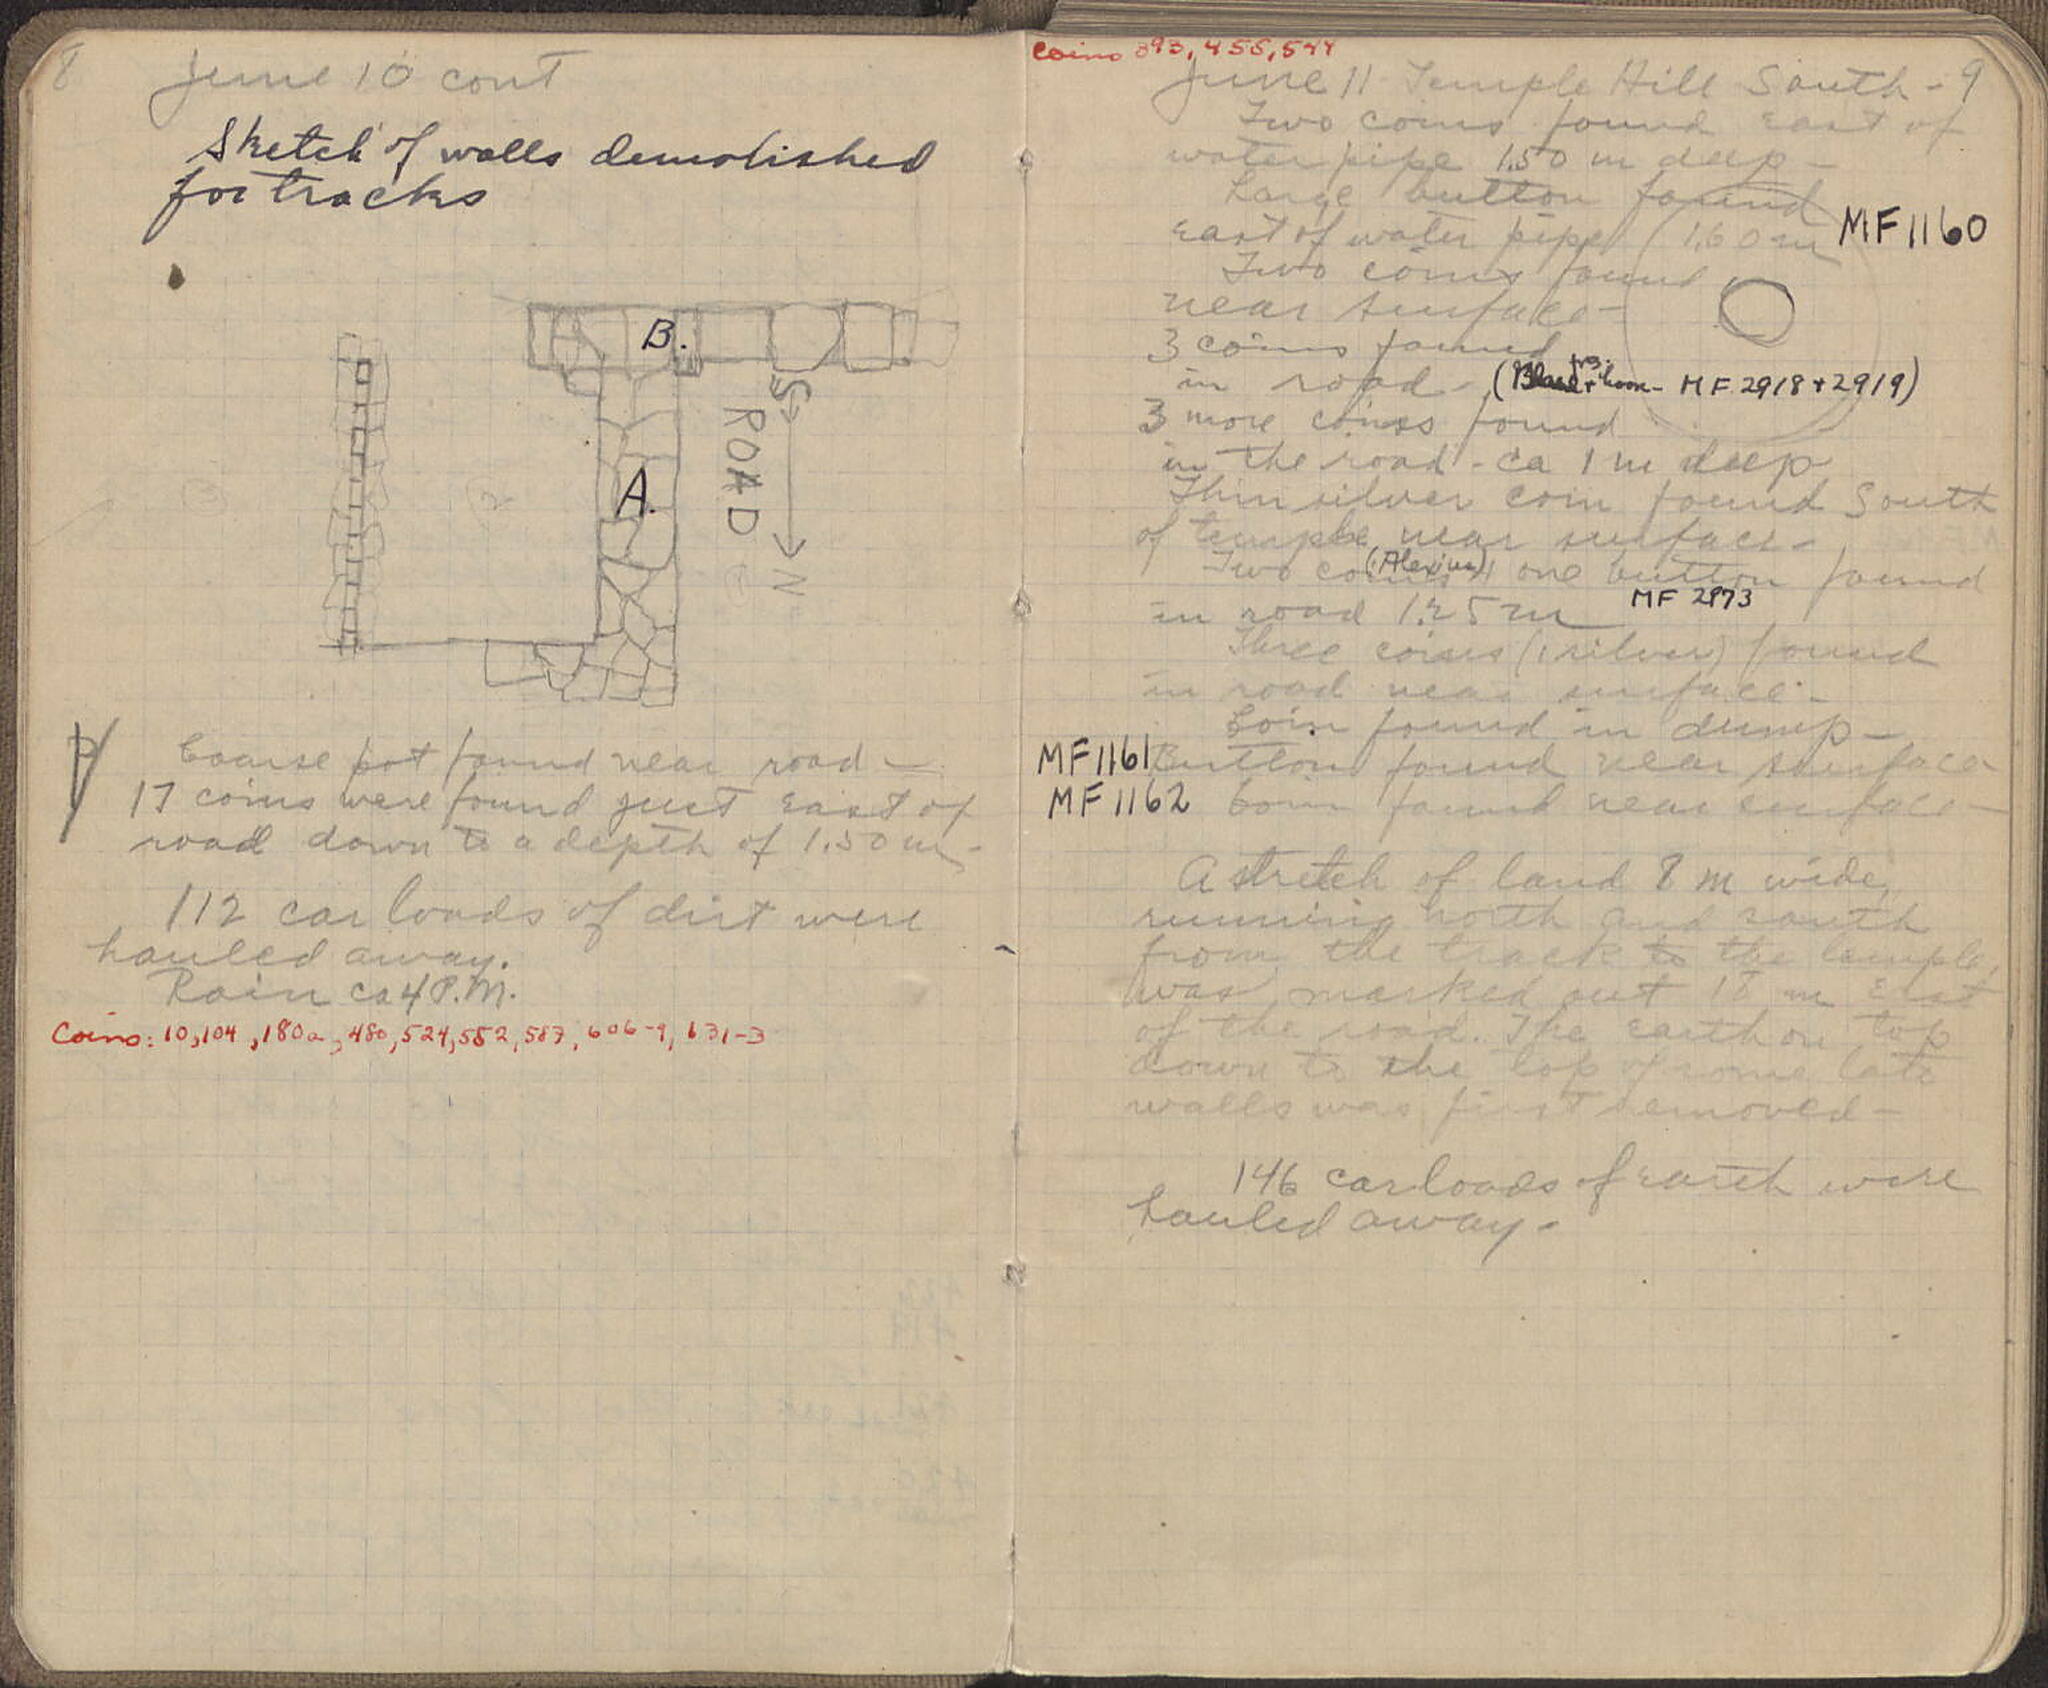 8
June 10 cont
Sketch of walls demolished
for tracks
B.
S
ROAD
A.
N
P
Coarse pot found near road -
17 coins were found just East of
road down to a depth of 1.50 m -
112 car loads of dirt were
hauled away.
Rain ca 4 P.M.
Coins: 10, 104, 180a, 480, 524, 552, 587, 606-9, 631-3
Coins 393, 455, 544
June 11 Temple Hill South - 9
Two coins found East of
water pipe 1.50 m deep -
Large button found
East of water pipe (1.60 m MF 1160
Two coins found
near surface -
3 coins found
in road - MF 2918 + 2919)
3 more coins found
in the road - ca 1 m deep
Thin silver coin found South
of temple near surface -
Two coins (Alexius) + one button found
in road 1.25 m MF 2873
Three coins (1 silver) found
in road near surface -
Coin found in dump -
MF 1161 Button found near surface
MF 1162 Coin found near surface -
A stretch of land 8 m wide,
running north and south
from the track to the temple,
was marked out 18 m East
of the road. The earth on top
down to the top of some late
walls was first removed -
146 car loads of earth were
hauled away -